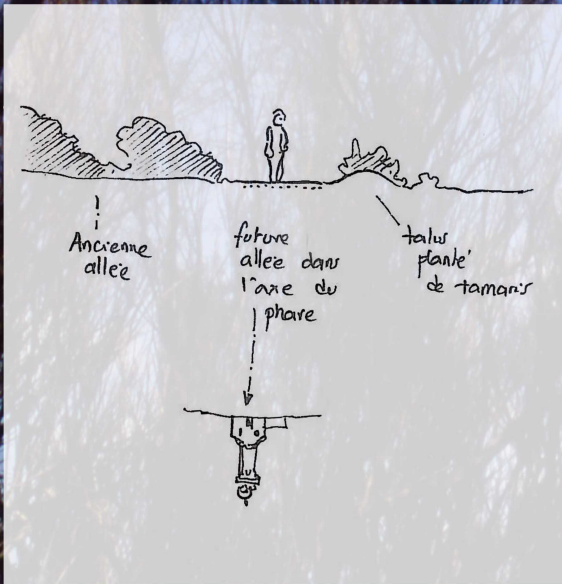 Ancienne
allée
future
allée dans
l'axe du
phare
talus
planté
de tamaris